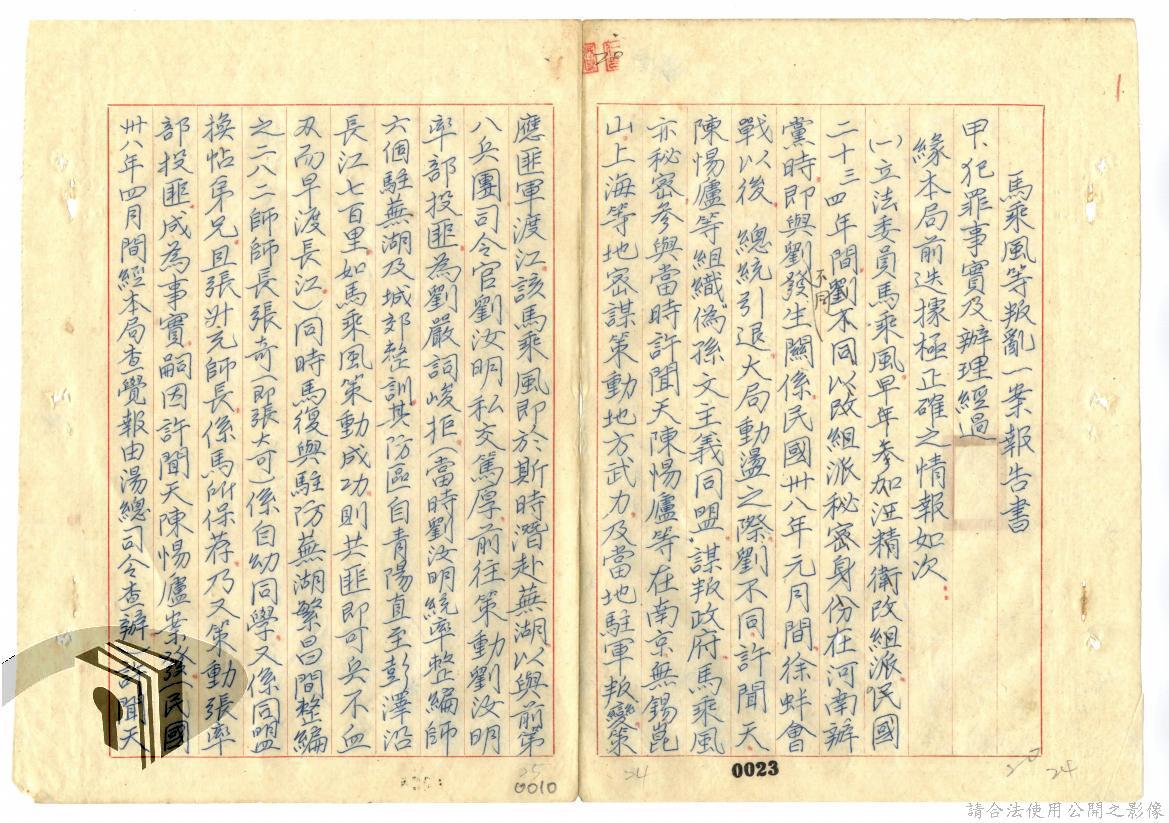 馬乘風等叛亂一案報告書
甲、犯罪事實及辦理經過
緣本局前迭據極正確之情報如次：
(一)立法委員馬乘風早年參加汪精衛改組派民國
二十三四年間劉不同以改組派秘密身份在河南辦
不同
黨時即與劉發生關係民國卅八年元月間徐蚌會
戰以後 總統引退大局動盪之際劉不同許聞天
陳惕廬等組織偽孫文主義同盟，謀叛政府馬乘風
亦秘密參與當時許聞天陳惕廬等在南京無錫崑
山上海等地密謀策動地方武力及當地駐軍叛變策
應匪軍渡江該馬乘風即於斯時潛赴蕪湖以與前第
八兵團司令官劉汝明私交篤厚前往策動劉汝明
率部投匪為劉嚴詞峻拒(當時劉汝明統率整編師
六個駐蕪湖及城郊整訓其防區自青陽直至彭澤沿
長江七百里如馬乘風策動成功則共匪即可兵不血
刃而早渡長江)同時馬復與駐防蕪湖繁昌間整編
之二八二師師長張奇(即張大可)係自幼同學又係同盟
換帖弟兄且張升充師長係馬所保荐乃又策動張率
部投匪成為事實嗣因許聞天陳惕廬案發(民國
卅八年四月間經本局查覺報由湯總司令查辦)許聞天
0023
0010
25
24
20
24
1
請合法使用公開之影像